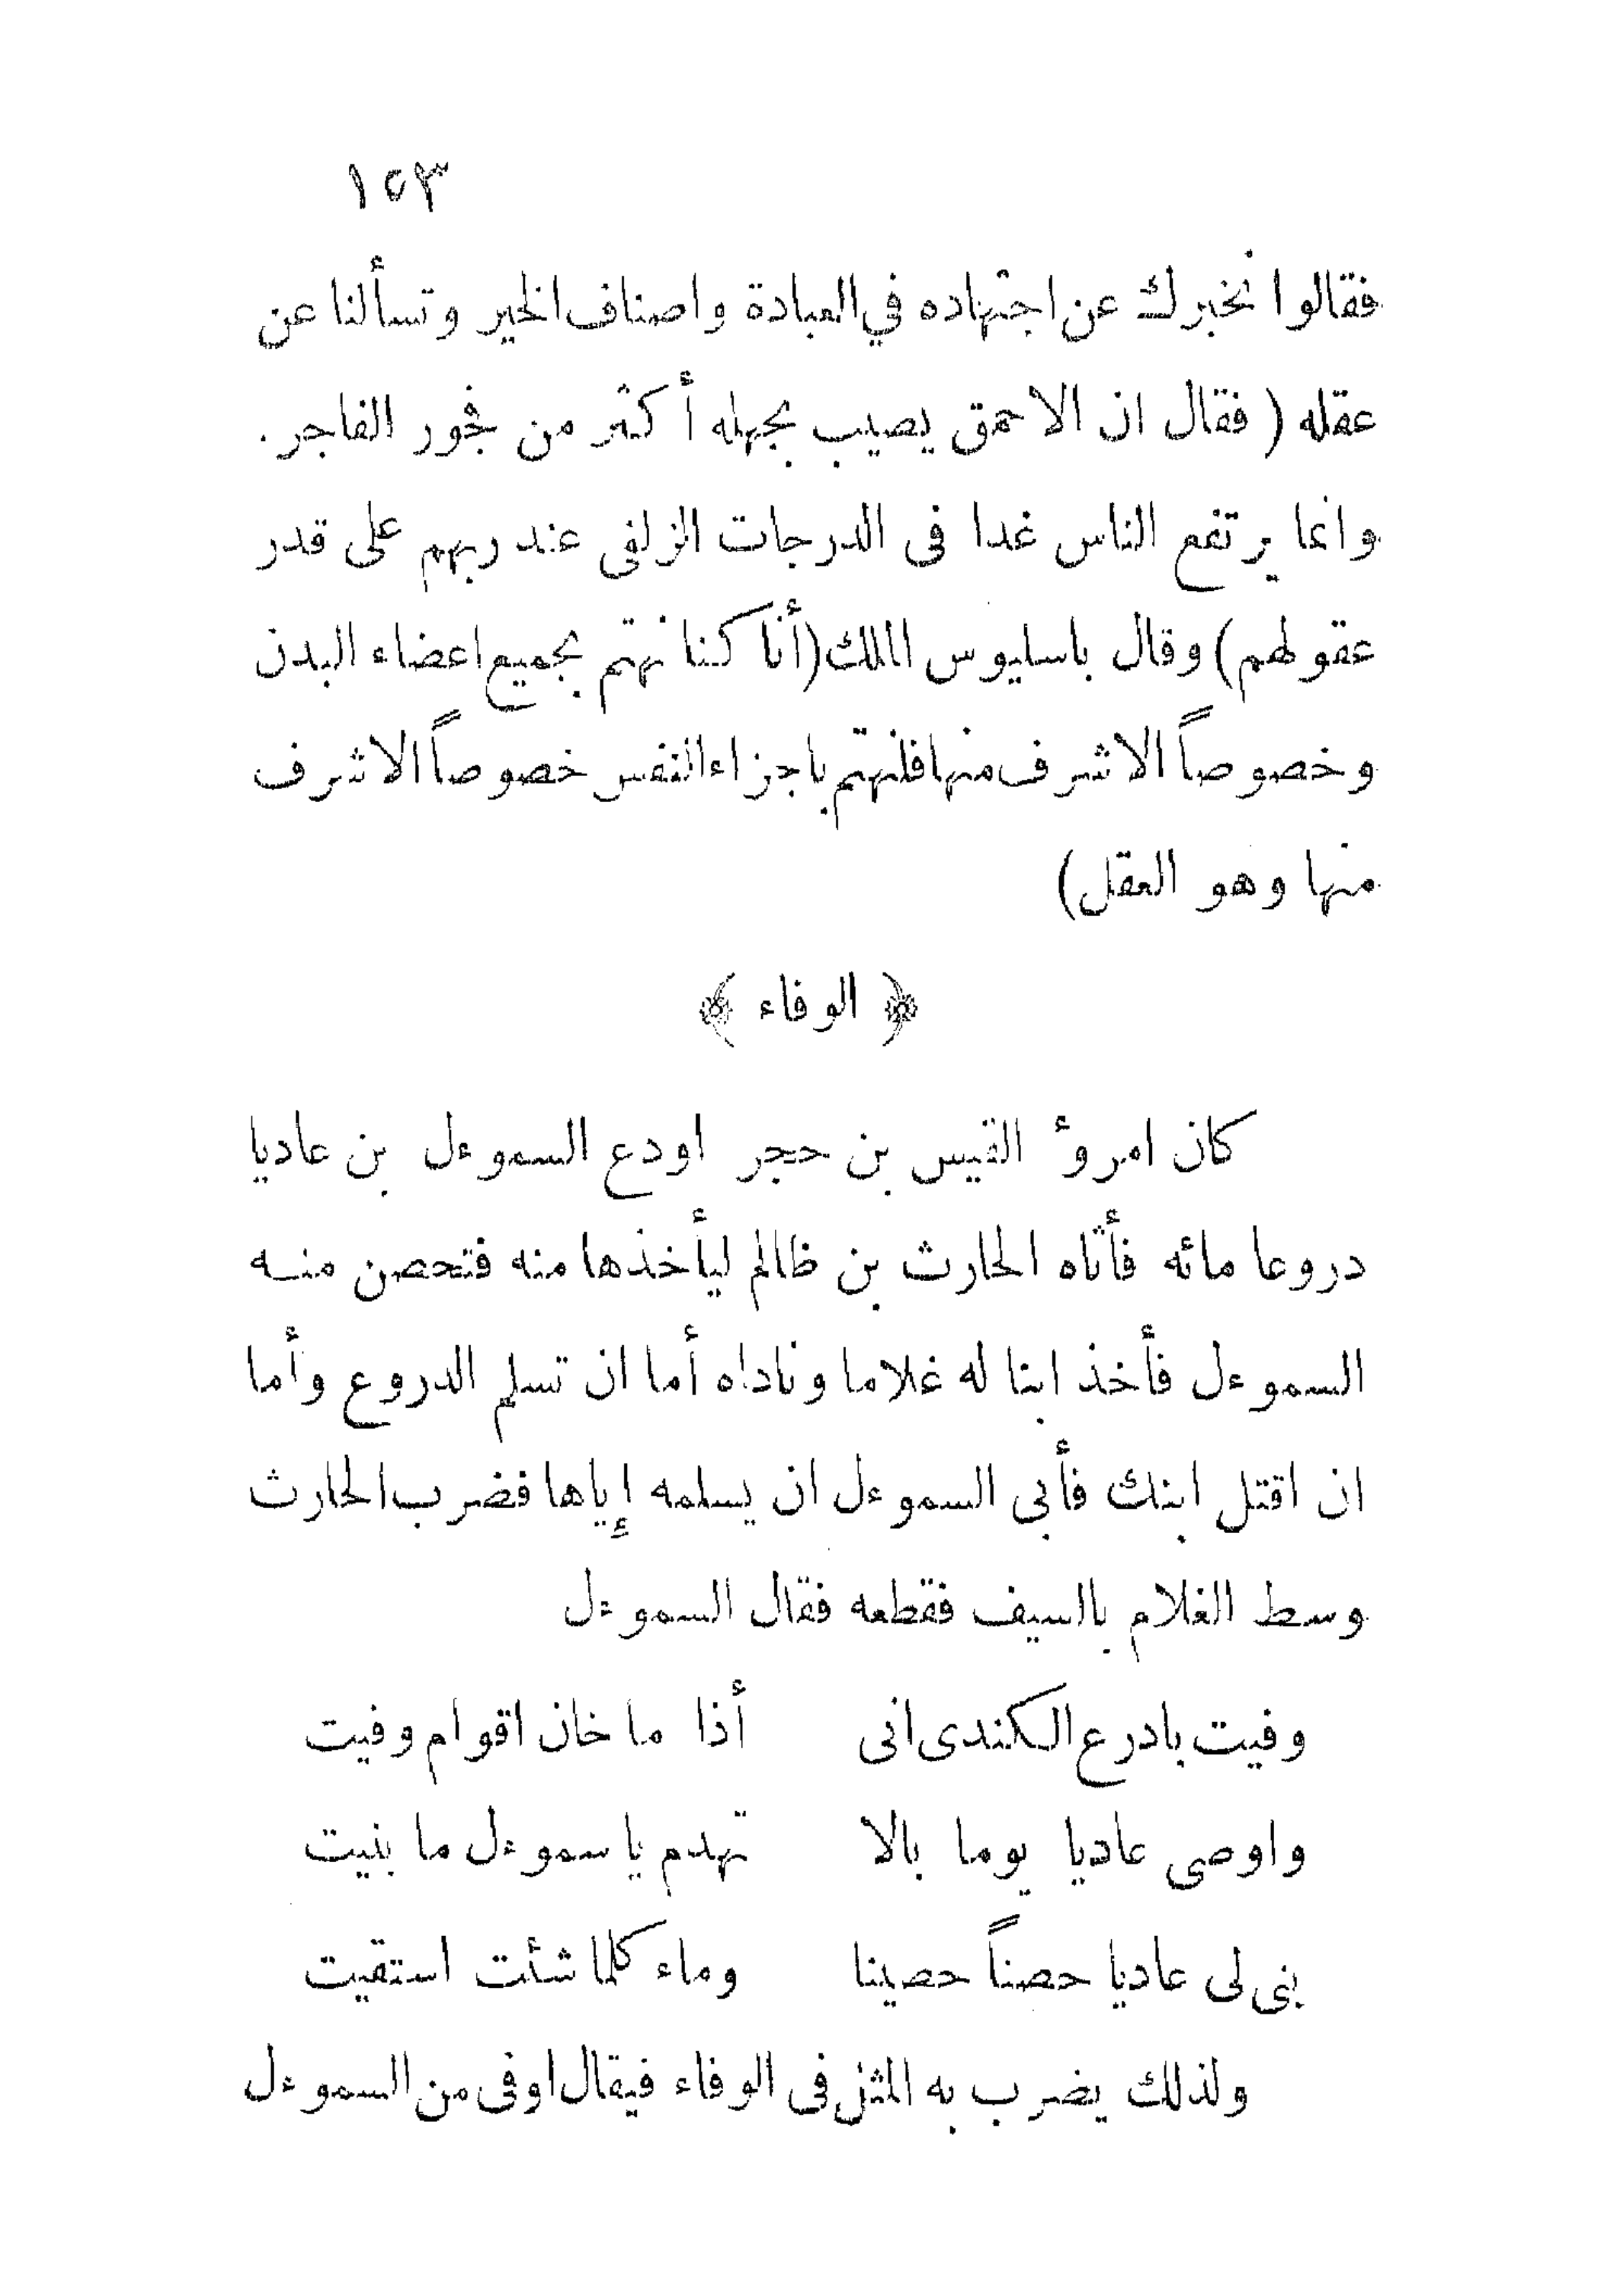 ١٥٣
فقالوا نخبرك عن اجتهاده في العبادة واصناف الخير وتسألنا عن
عقله ( فقال ان الاحمق يصيب بجهله أكثر من فجور الفاجر .
وانما يرتفع الناس غدا فى الدرجات الزلفى عند ربهم على قدر
عقولهم) وقال باسليوس الملك (أنا كنا نهتم بجميع اعضاء البدن
وخصوصاً الاشرف منها فلنهتم باجزاء النفس خصوصاً الاشرف
منها وهو العقل)
﴿ الوفاء ﴾
كان امرؤ القيس بن حجر اودع السموءل بن عاديا
دروعا مائه فأتاه الحارث بن ظالم ليأخذها منه فتحصن منه
السموءل فأخذ ابنا له غلاما وناداه أما ان تسلم الدروع وأما
ان اقتل ابنك فأبى السموءل ان يسلمه إياها فضرب الحارث
وسط الغلام بالسيف فقطعه فقال السموءل
وفيت بادرع الكندى انى أذا ما خان اقوام وفيت
واوصى عاديا يوما بالا تهدم يا سموءل ما بنيت
بنى لى عاديا حصناً حصينا وماء كلما شئت استقيت
ولذلك يضرب به المثل فى الوفاء فيقال اوفى من السموءل